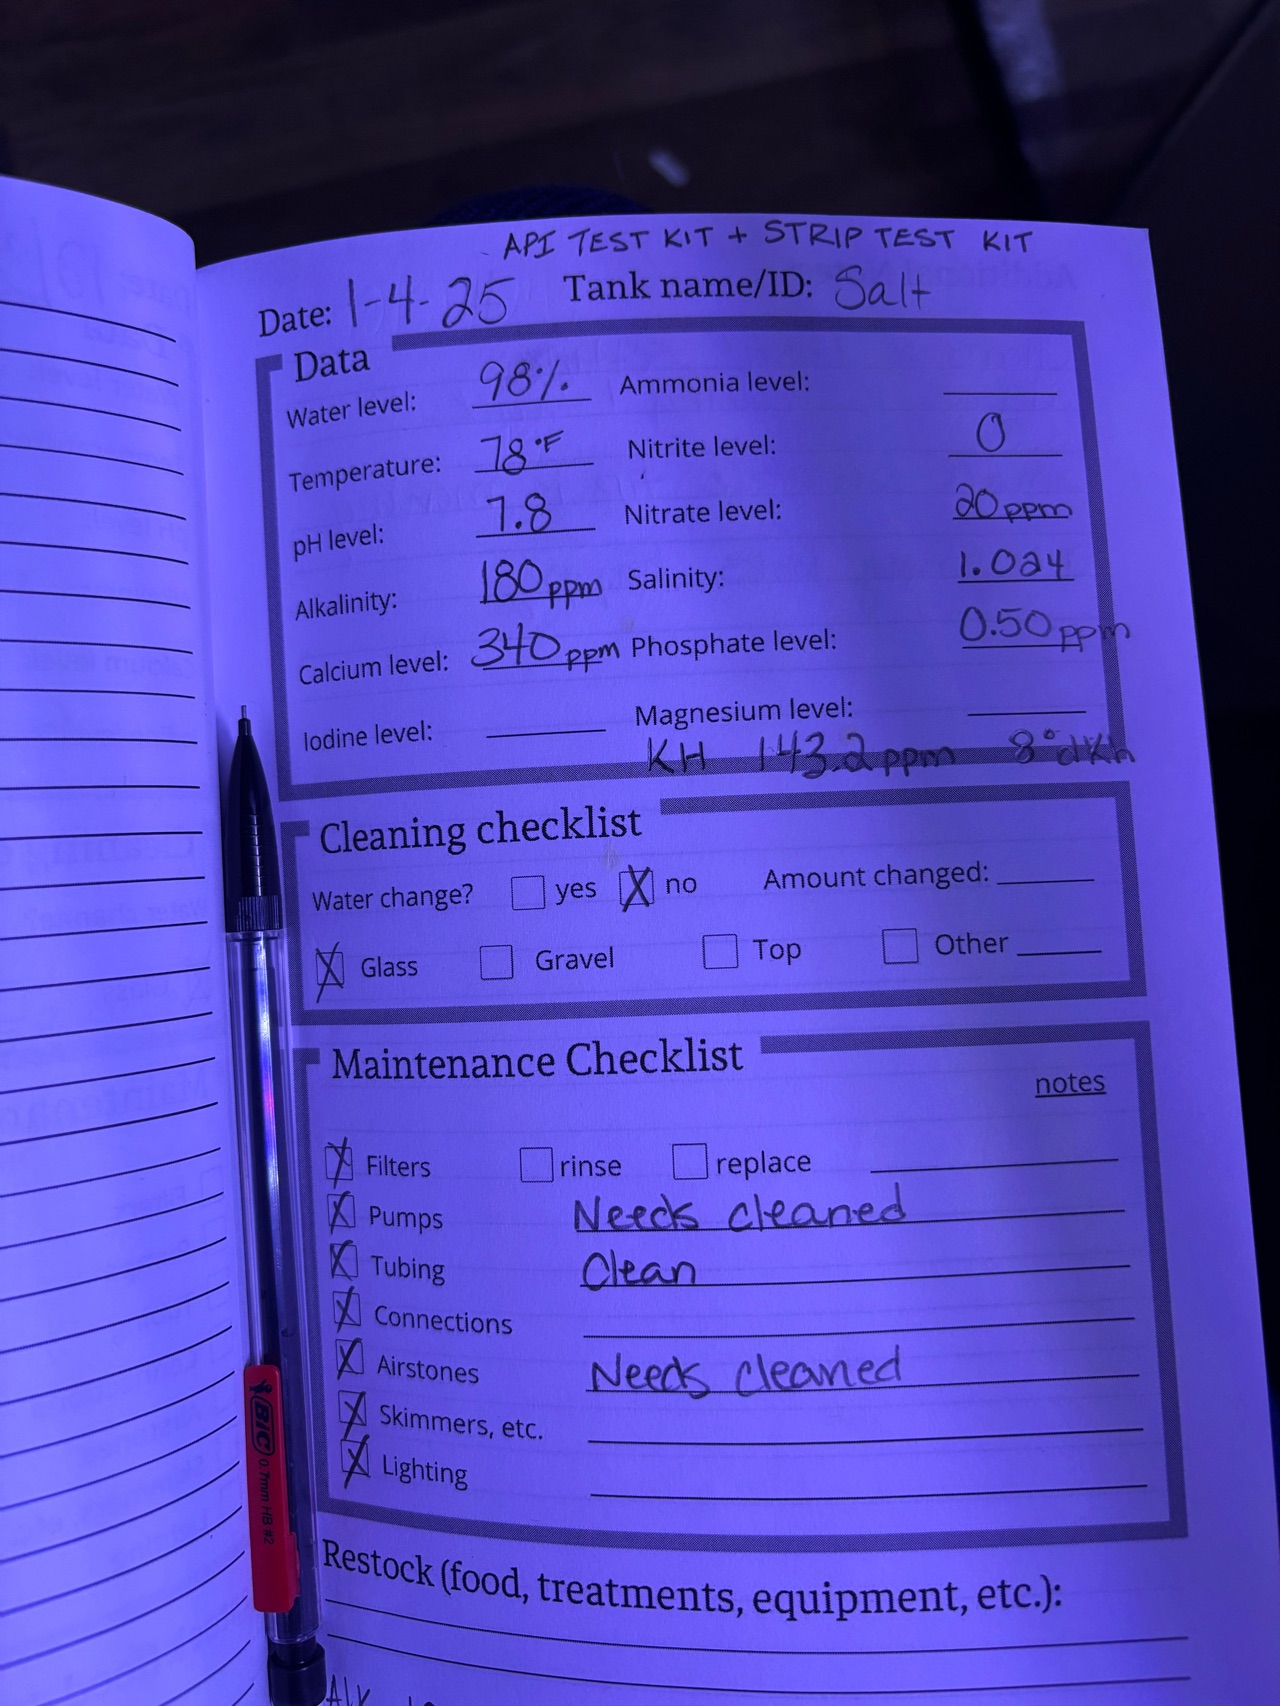 API TEST KIT + STRIP TEST KIT
Date: 1-4-25 Tank name/ID: Salt
Data
Water level: 98% Ammonia level:
Temperature: 78°F Nitrite level: 0
pH level: 7.8 Nitrate level: 20ppm
Alkalinity: 180ppm Salinity: 1.024
Calcium level: 340ppm Phosphate level: 0.50ppm
Iodine level: Magnesium level:
KH 143.2ppm 8°dKh
Cleaning checklist
Water change? yes X no Amount changed:
X Glass Gravel Top Other
Maintenance Checklist
notes
X Filters rinse replace
X Pumps Needs cleaned
X Tubing Clean
X Connections
X Airstones Needs cleaned
X Skimmers, etc.
X Lighting
Restock (food, treatments, equipment, etc.):
BIC 0.7mm HB #2